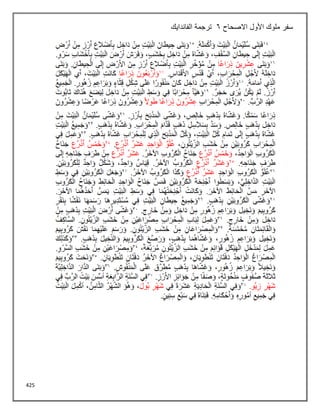 سفر ملوك الأول الاصحاح ٦ ترجمة الفاندايك
فَبَنَى سُلَيْمَانُ الْبَيْتَ وَأَكْمَلَهُ. وَبَنَى حِيطَانَ الْبَيْتِ مِنْ دَاخِل بِأَضْلاَعِ أَرْزٍ مِنْ أَرْضِ
الْبَيْتِ إِلَى حِيطَانِ السَّقْفِ، وَغَشَّاهُ مِنْ دَاخِل بِخَشَبٍ، وَفَرَشَ أَرْضَ الْبَيْتِ بِأَخْشَابِ سَرْوٍ.
وَبَنَى عِشْرِينَ ذِرَاعًا مِنْ مُؤَخَّرِ الْبَيْتِ بِأَضْلاَعِ أَرْزٍ مِنَ الأَرْضِ إِلَى الْحِيطَانِ. وَبَنَى
دَاخِلَهُ لأَجْلِ الْمِحْرَابِ، أَيْ قُدْسِ الأَقْدَاسِ. وَأَرْبَعُونَ ذِرَاعًا كَانَتِ الْبَيْتَ، أَيِ الْهَيْكَلَ
الَّذِي أَمَامَهُ. وَأَرْزُ الْبَيْتِ مِنْ دَاخِل كَانَ مَنْقُورًا عَلَى شِكْلِ قِثَّاءٍ وَبَرَاعِمِ زُهُورٍ. الْجَمِيعُ
أَرْزٌ. لَمْ يَكُنْ يُرَى حَجَرٌ. وَهَيَّأَ مِحْرَابًا فِي وَسَطِ الْبَيْتِ مِنْ دَاخِل لِيَضَعَ هُنَاكَ تَابُوتَ
عَهْدِ الرَّبِّ. وَلأَجْلِ الْمِحْرَابِ عِشْرُونَ ذِرَاعًا طُولاً وَعِشْرُونَ ذِرَاعًا عَرْضًا وَعِشْرُونَ
ذِرَاعًا سَمْكًا. وَغَشَّاهُ بِذَهَبٍ خَالِصٍ، وَغَشَّى الْمَذْبَحَ بِأَرْزٍ. وَغَشَّى سُلَيْمَانُ الْبَيْتَ مِنْ
دَاخِل بِذَهَبٍ خَالِصٍ. وَسَدَّ بِسَلاَسِلِ ذَهَبٍ قُدَّامَ الْمِحْرَابِ. وَغَشَّاهُ بِذَهَبٍ. وَجَمِيعُ الْبَيْتِ
غَشَّاهُ بِذَهَبٍ إِلَى تَمَامِ كُلِّ الْبَيْتِ، وَكُلَّ الْمَذْبَحِ الَّذِي لِلْمِحْرَابِ غَشَّاهُ بِذَهَبٍ. وَعَمِلَ فِي
الْمِحْرَابِ كَرُوبَيْنِ مِنْ خَشَبِ الزَّيْتُونِ، عُلُوُّ الْوَاحِدِ عَشَرُ أَذْرُعٍ. وَخَمْسُ أَذْرُعٍ جَنَاحُ
الْكَرُوبِ الْوَاحِدُ، وَخَمْسُ أَذْرُعٍ جَنَاحُ الْكَرُوبِ الآخَرُ. عَشَرُ أَذْرُعٍ مِنْ طَرَفِ جَنَاحِهِ إِلَى
طَرَفِ جَنَاحِهِ. وَعَشَرُ أَذْرُعٍ الْكَرُوبُ الآخَرُ. قِيَاسٌ وَاحِدٌ، وَشَكْلٌ وَاحِدٌ لِلْكَرُوبَيْنِ.
عُلُوُّ الْكَرُوبِ الْوَاحِدِ عَشَرُ أَذْرُعٍ وَكَذَا الْكَرُوبُ الآخَرُ. وَجَعَلَ الْكَرُوبَيْنِ فِي وَسَطِ
الْبَيْتِ الدَّاخِلِيِّ، وَبَسَطُوا أَجْنِحَةَ الْكَرُوبَيْنِ فَمَسَّ جَنَاحُ الْوَاحِدِ الْحَائِطَ وَجَنَاحُ الْكَرُوبِ
الآخَرِ مَسَّ الْحَائِطَ الآخَرَ. وَكَانَتْ أَجْنِحَتُهُمَا فِي وَسَطِ الْبَيْتِ يَمَسُّ أَحَدُهُمَا الآخَرَ.
وَغَشَّى الْكَرُوبَيْنِ بِذَهَبٍ. وَجَمِيعُ حِيطَانِ الْبَيْتِ فِي مُسْتَدِيرِهَا رَسَمَهَا نَقْشًا بِنَقْرِ
كَرُوبِيمَ وَنَخِيل وَبَرَاعِمِ زُهُورٍ مِنْ دَاخِل وَمِنْ خَارِجٍ. وَغَشَّى أَرْضَ الْبَيْتِ بِذَهَبٍ مِنْ
دَاخِل وَمِنْ خَارِجٍ. وَعَمِلَ لِبَابِ الْمِحْرَابِ مِصْرَاعَيْنِ مِنْ خَشَبِ الزَّيْتُونِ. السَّاكِفُ
وَالْقَائِمَتَانِ مُخَمَّسَةٌ. وَالْمِصْرَاعَانِ مِنْ خَشَبِ الزَّيْتُونِ. وَرَسَمَ عَلَيْهِمَا نَقْشَ كَرُوبِيمَ
وَنَخِيل وَبَرَاعِمِ زُهُورٍ، وَغَشَّاهُمَا بِذَهَبٍ، وَرَصَّعَ الْكَرُوبِيمَ وَالنَّخِيلَ بِذَهَبٍ. وَكَذلِكَ
عَمِلَ لِمَدْخَلِ الْهَيْكَلِ قَوَائِمَ مِنْ خَشَبِ الزَّيْتُونِ مُرَبَّعَةً، وَمِصْرَاعَيْنِ مِنْ خَشَبِ السَّرْوِ.
الْمِصْرَاعُ الْوَاحِدُ دَفَّتَانِ تَنْطَوِيَانِ، وَالْمِصْرَاعُ الآخَرُ دَفَّتَانِ تَنْطَوِيَانِ. وَنَحَتَ كَرُوبِيمَ
وَنَخِيلاً وَبَرَاعِمَ زُهُورٍ، وَغَشَّاهَا بِذَهَبٍ مُطَرَّق عَلَى الْمَنْقُوشِ. وَبَنَى الدَّارَ الدَّاخِلِيَّةَ
ثَلاَثَةَ صُفُوفٍ مَنْحُوتَةٍ، وَصَفًّا مِنْ جَوَائِزِ الأَرْزِ. فِي السَّنَةِ الرَّابِعَةِ أُسِّسَ بَيْتُ الرَّبِّ فِي
شَهْرِ زِيُو. وَفِي السَّنَةِ الْحَادِيَةِ عَشْرَةَ فِي شَهْرِ بُولَ، وَهُوَ الشَّهْرُ الثَّامِنُ، أُكْمِلَ الْبَيْتُ
فِي جَمِيعِ أُمُورِهِ وَأَحْكَامِهِ. فَبَنَاهُ فِي سَبْعِ سِنِينَ.
425